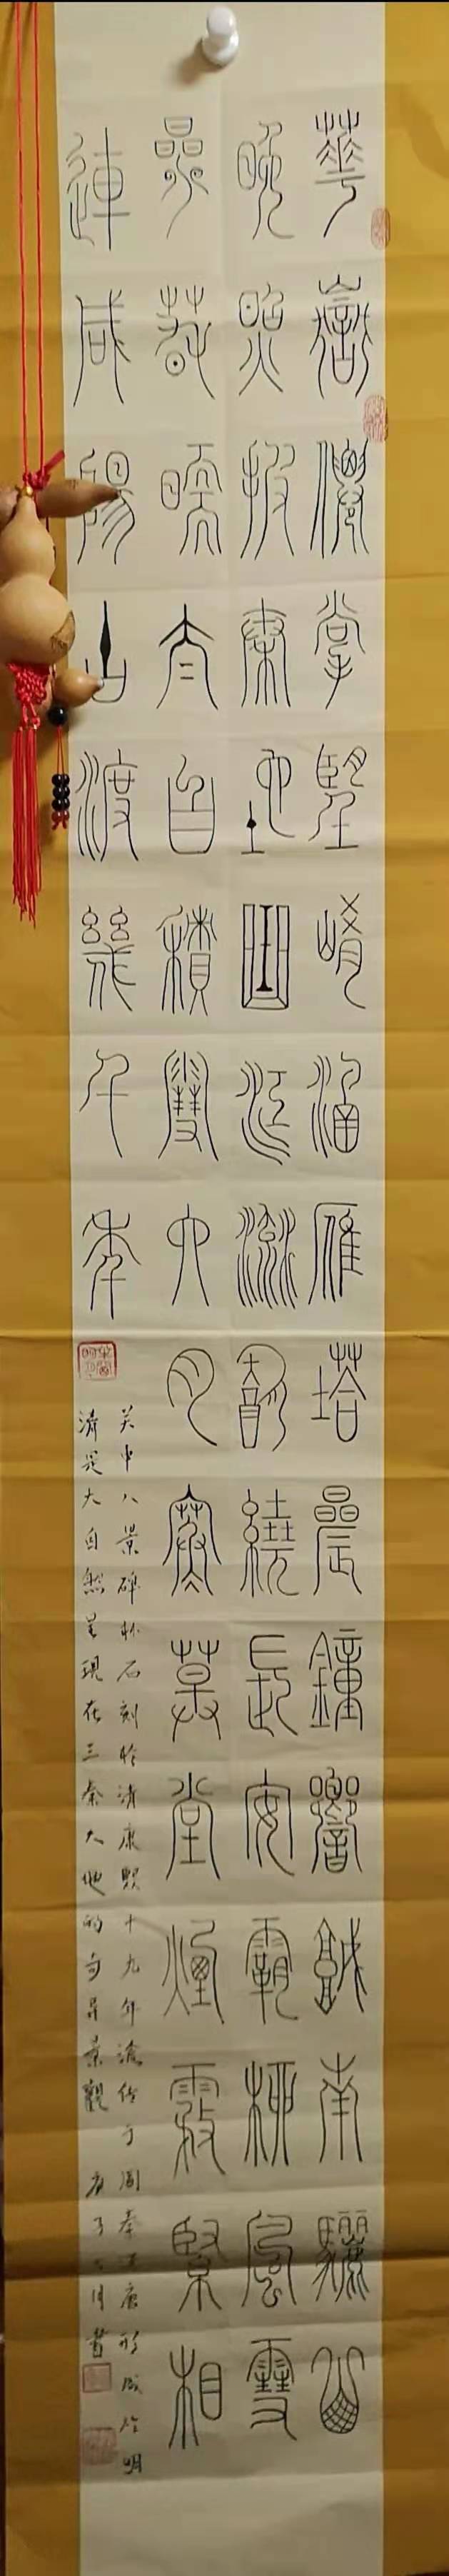 華嶽僊掌堅崤涵雁塔晨鐘響城南驪山
晚照披秦地曲江流飲繞長安霸柳風雪
疊春暖太白積雪六月寒草堂煙霧緊相
連咸陽古渡幾千年
关中八景碑林石刻於清康熙十九年傳于周秦唐形成於明
清是大自然呈現在三秦大地的奇异景觀 庚子月書